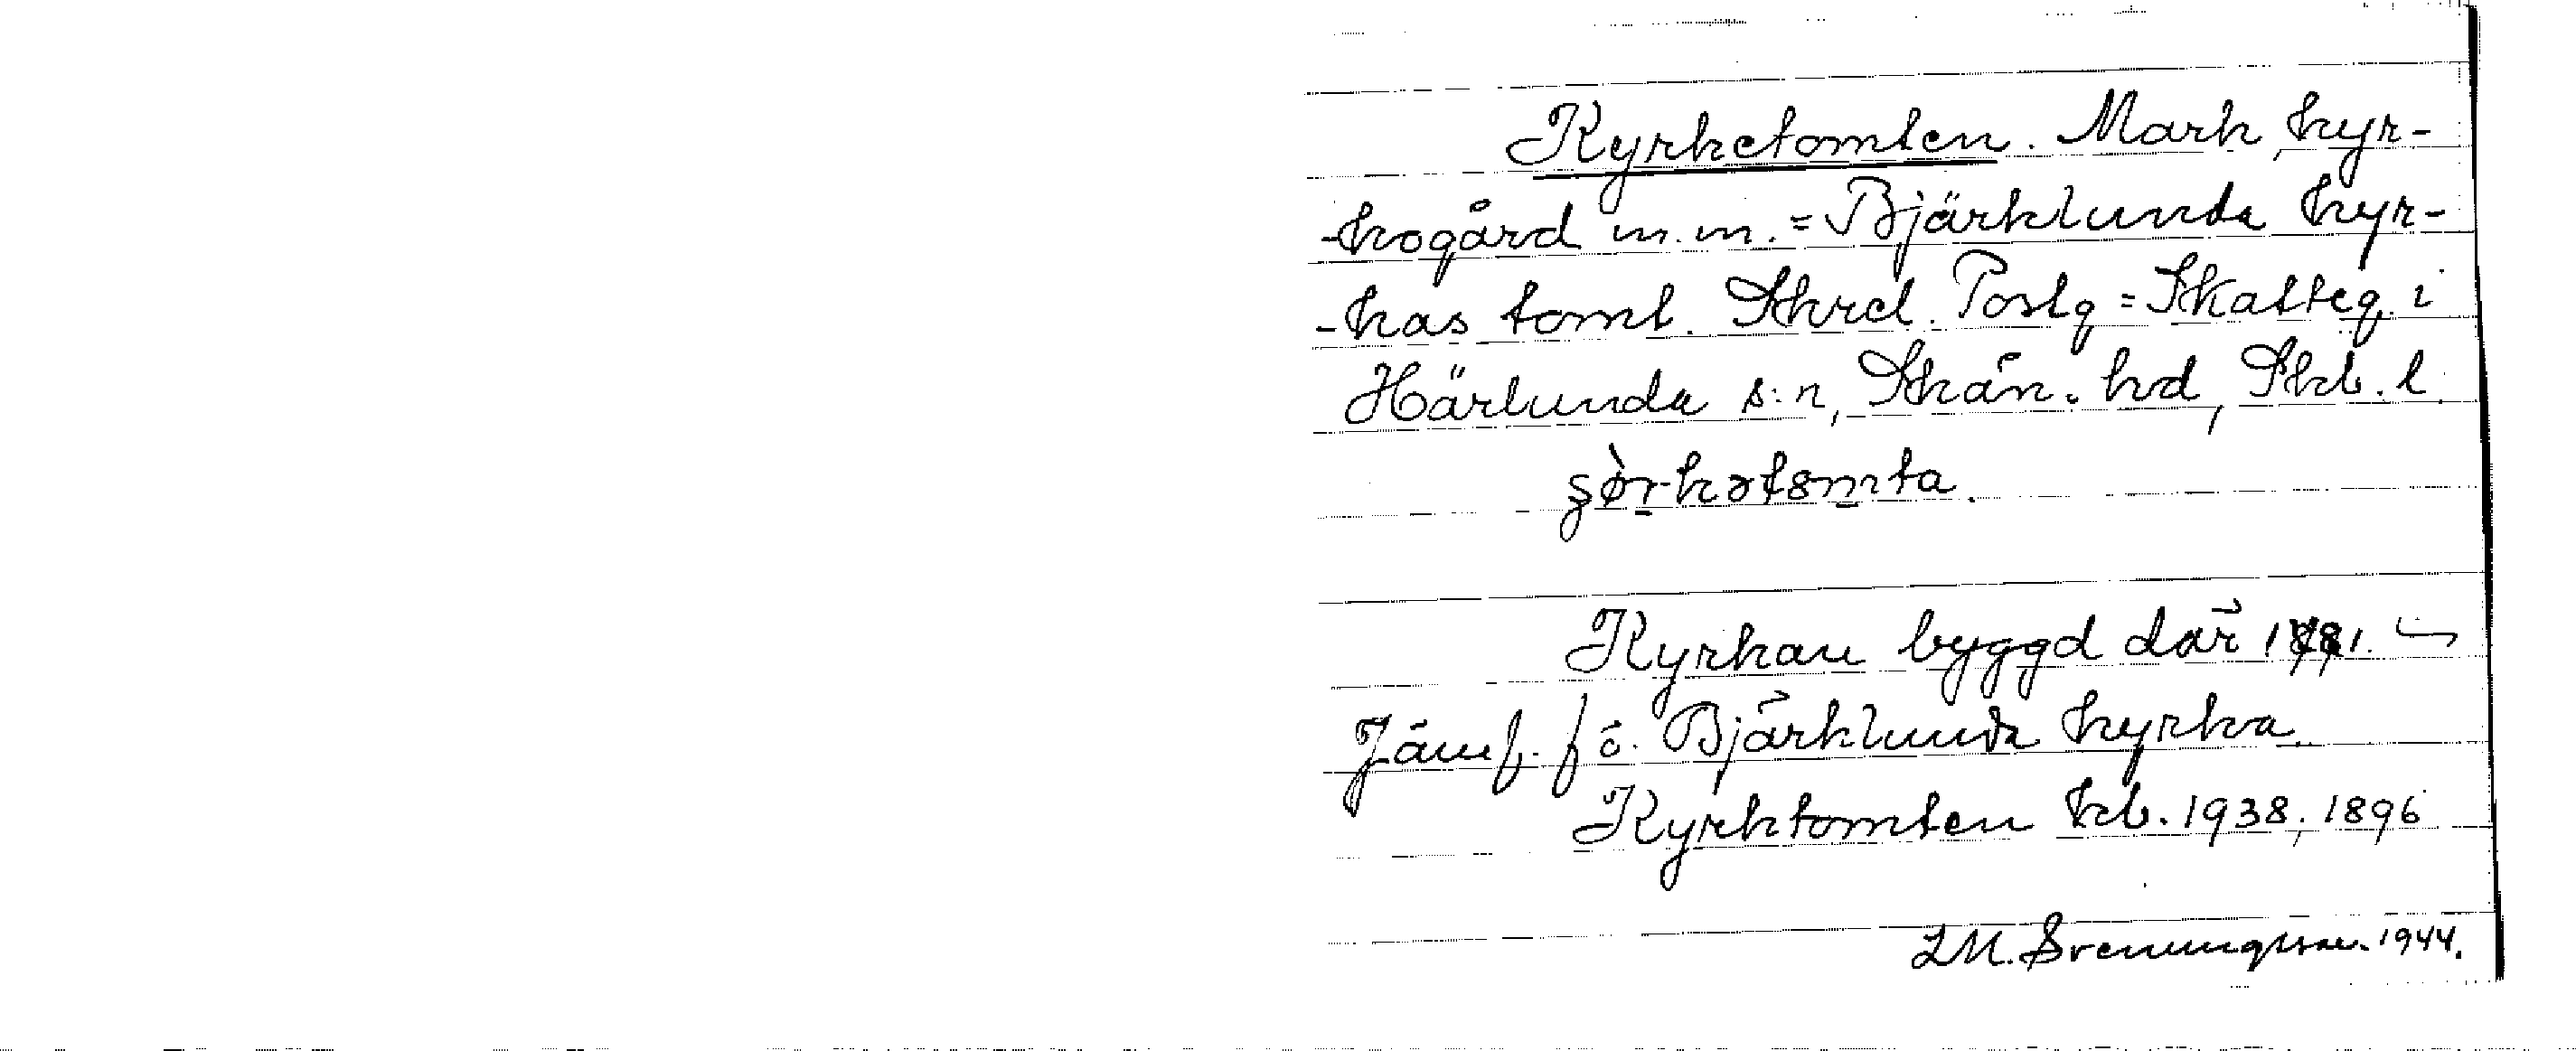 Kyrketomten. Mark, kyr-
-kogård m.m. = Bjärklunda kyr-
-kas tomt. Skrd. Postg = Skatteg. i
Härlunda s:n, Skån. hd, Skb. l.
Kyrkan byggd där
Jämf. fö. Bjärklunda kyrka.
Kyrktomten kb. 1938, 1896
LM. Svenungsson. 1944.